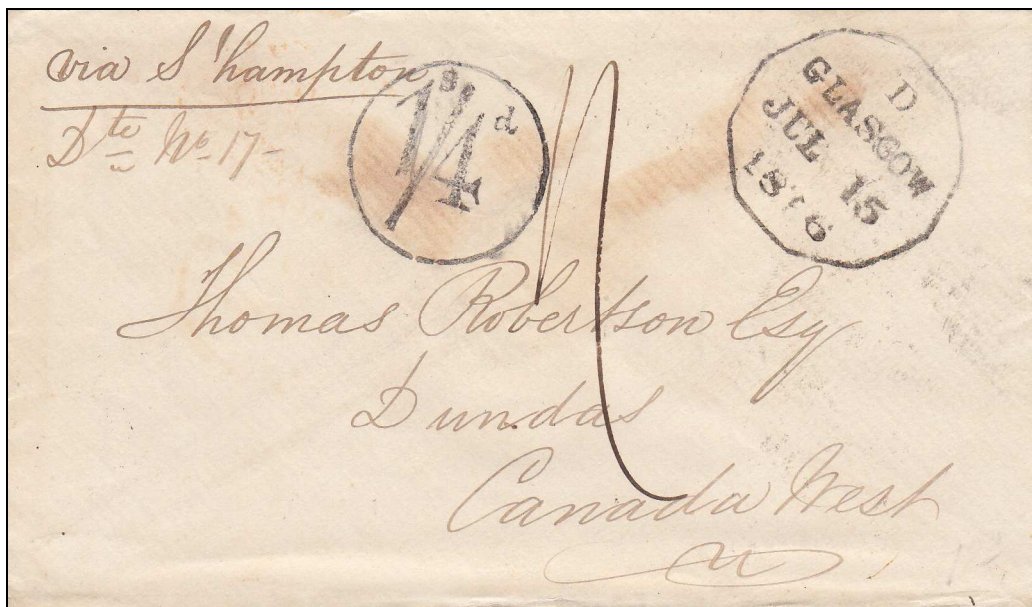 via S'hampton
Dte No 17-
1/4 d
D
GLASGOW
JUL 15
1856
Thomas Robertson Esq
Dundas
Canada West